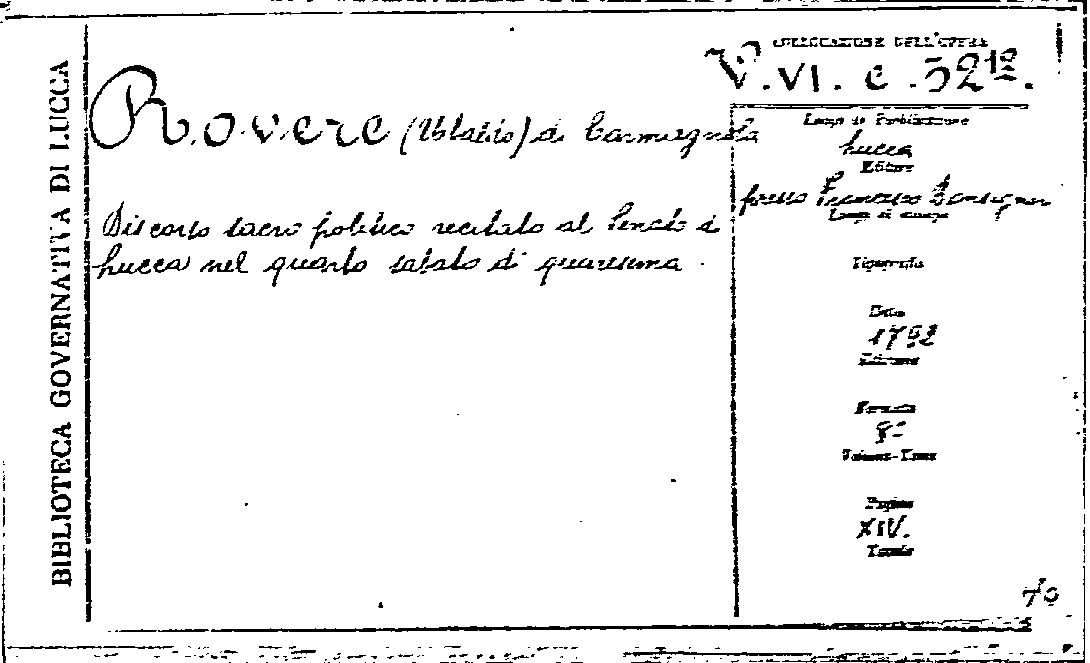 BIBLIOTECA GOVERNATIVA DI LUCCA
COLLOCAZIONE DELL'OPERA
V. VI. c. 52 1º.
Rovere (Ubaldo) di Carmagnola
Discorso sacro politico recitato al Senato di
Lucca nel quarto sabato di quaresima.
Luogo di Pubblicazione
Lucca
Editore
presso Francesco Bonsignori
Luogo di stampa
Tipografia
Data
1792
Edizione
Formato
8º
Volume-Tomo
Pagine
XIV.
Tavole